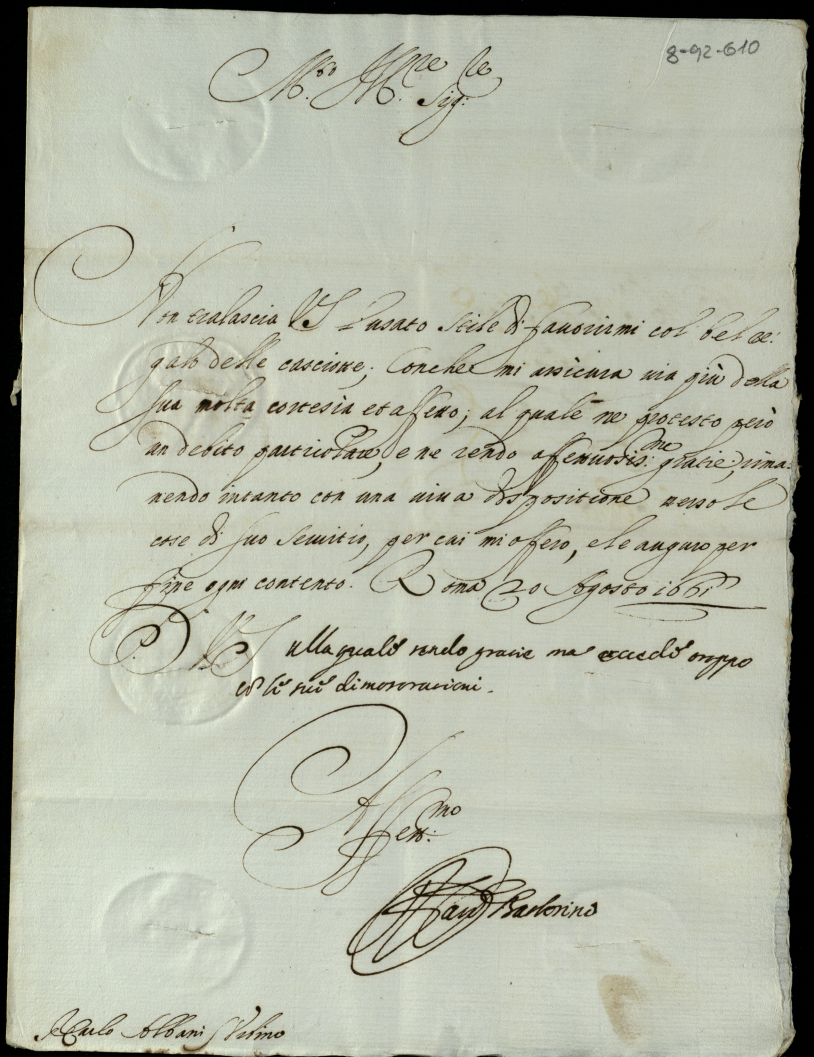 8-92-610
M.to Ill.re
Sig.re
Non tralascia VS l'usato stile di favorirmi col bel re:
galo delle casciotte; Conche mi assicura via più della
sua molta cortesia et affetto; al quale ne protesto però
un debito particolare, e ne rendo affettuosis:me gratie; rima-
nendo intanto con una viva dispositione verso le
cose di suo servitio, per cui mi offero, e le auguro per
fine ogni contento. Roma 20 Agosto 1661
D. VS alla quale rendo gratie ma eccede troppo
co le sue dimostrationi.
Aff.ett:mo
Carlo Albani Urbino